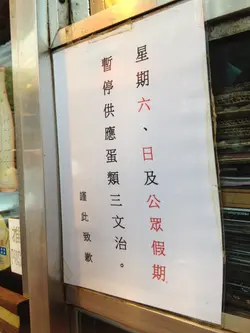 星期六、日及公眾假期
暫停供應蛋類三文治。
謹此致歉